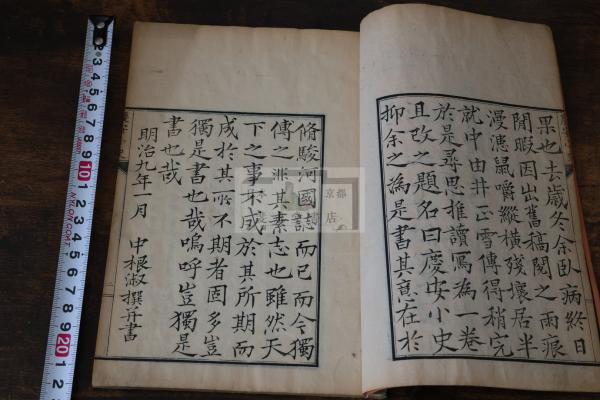 果也去歲冬余臥病終日
閒暇因出舊稿閱之雨痕
漫漶鼠嚼縱橫殘壞居半
就中由井正雪傳得稍完
於是尋思推讀寫為一卷
且改之題名曰慶安小史
抑余之為是書其意在於
脩駿河國誌而已而今獨
傳之非其素志也雖然天
下之事不成於其所期而
成於其所不期者固多豈
獨是書也哉嗚呼豈獨是
書也哉
明治九年一月 中根淑撰并書
京都